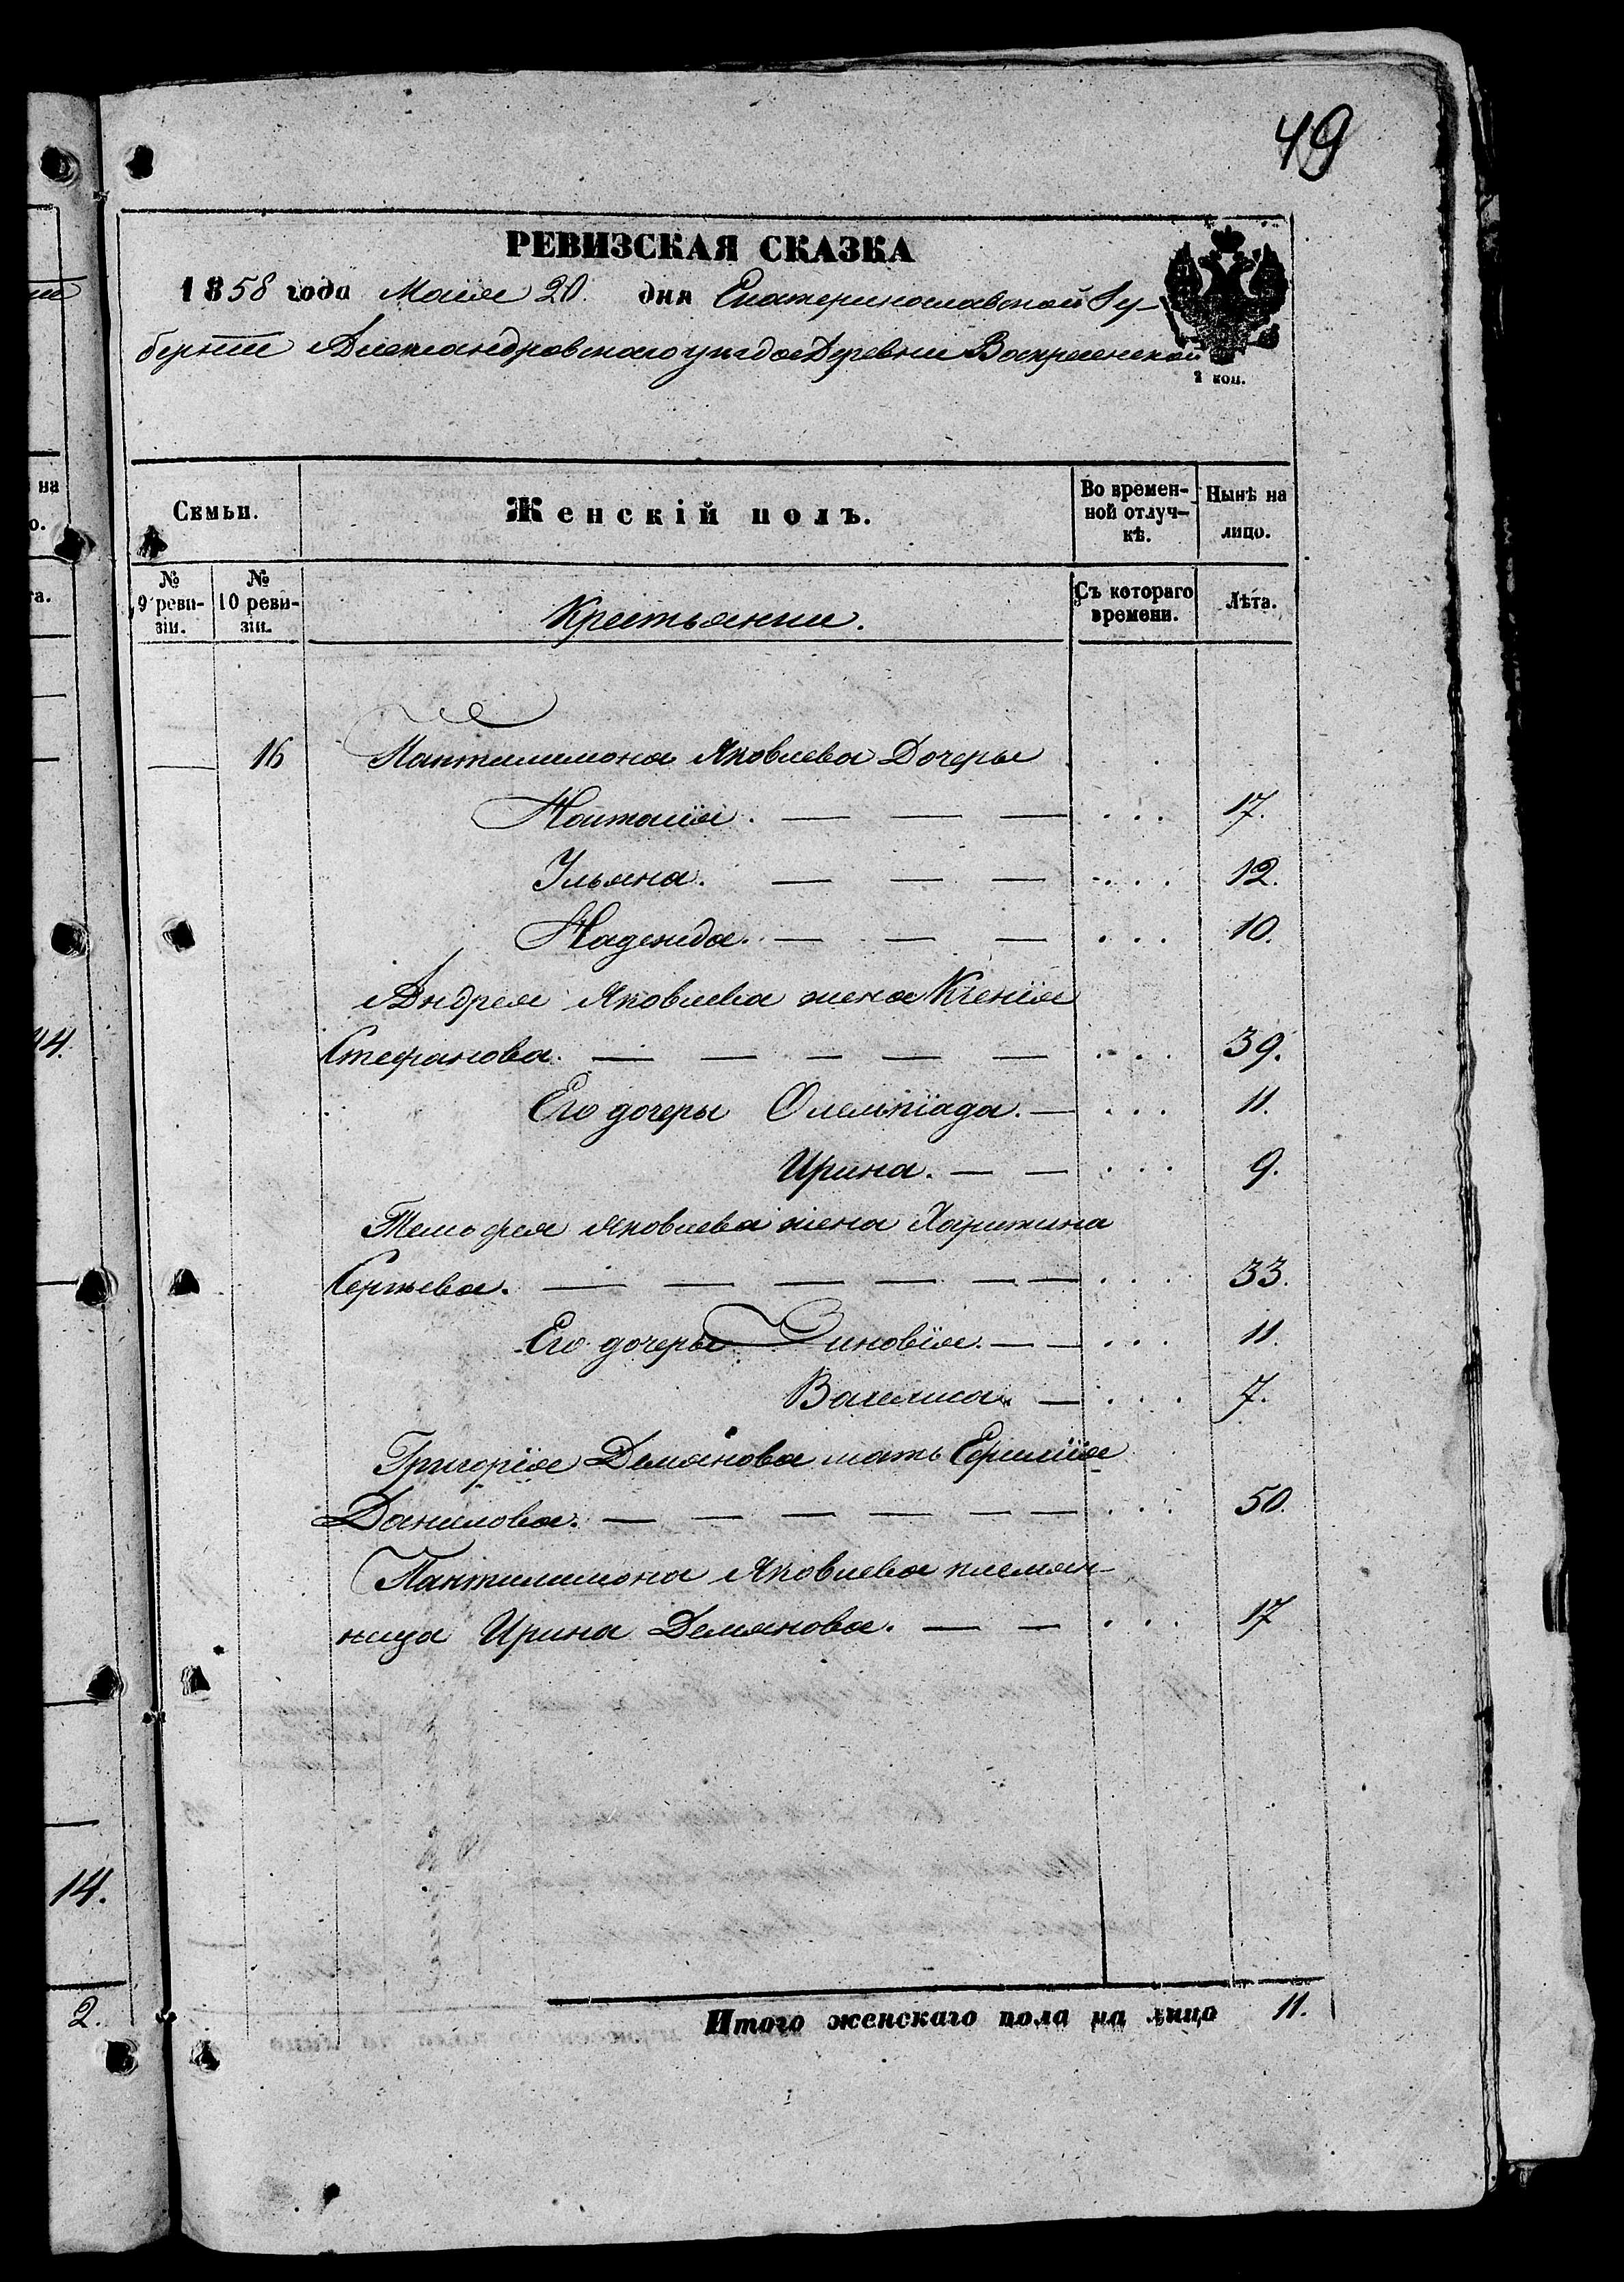 49
РЕВИЗСКАЯ СКАЗКА
1858 года Маія 20. дня Екатеринославской Гу-
берніи Александровскаго уѣзда Деревни Воскресенской
2 коп.
Семьи. Женскій полъ. Во времен-ной отлуч-кѣ. Нынѣ на лицо.
№ 9 реви-зіи. № 10 реви-зіи. Крестьянки. Съ котораго времени. Лѣта.
— 16 Пантилимона Яковлева Дочеры
Наталія. — — — . . . 17.
Ульяна. — — — . . . 12.
Надежда. — — — . . . 10.
Андрея Яковлева жена Ксенія
Стефанова. — — — — — . . . 39.
Его дочеры Олемпіада. — . . . 11.
Ирина. — — . . . 9.
Темофея Яковлева жена Харитина
Сергѣева. — — — — — — . . . 33.
Его дочеры Зиновія. — — . . . 11.
Васелиса. — . . . 7.
Григорія Демянова мать Ефимія
Данилова. — — — — — — . . . 50.
Пантилимона Яковлева племян-
ница Ирина Демянова. — — . . . 17
Итого женскаго пола на лицо 11.
на
о.
та.
14.
14.
2.